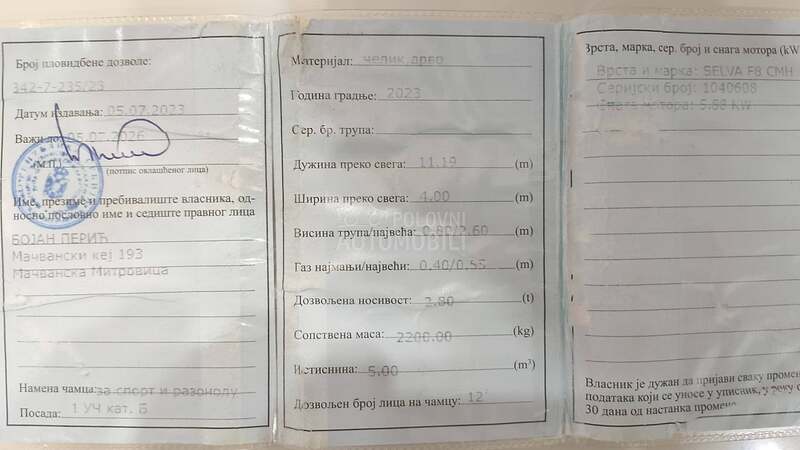 Број пловидбене дозволе:
342-7-235/23
Датум издавања: 05.07.2023
Важи до: 05.07.2026
(М.П.)
(потпис овлашћеног лица)
Име, презиме и пребивалиште власника, од-
носно пословно име и седиште правног лица
БОЈАН ПЕРИЋ
Мачвански кеј 193
Мачванска Митровица
Намена чамца: за спорт и разоноду
Посада: 1 УЧ кат. Б
Материјал: челик дрво
Година градње: 2023
Сер. бр. трупа:
Дужина преко свега: 11.19 (m)
Ширина преко свега: 4.00 (m)
Висина трупа/највећа: 0.80/2.60 (m)
Газ најмањи/највећи: 0.40/0.55 (m)
Дозвољена носивост: 2.80 (t)
Сопствена маса: 2200.00 (kg)
Истиснина: 5.00 (m³)
Дозвољен број лица на чамцу: 12
POLOVNI
AUTOMOBILI
Врста, марка, сер. број и снага мотора (kW
Врста и марка: SELVA F8 CMH
Серијски број: 1040608
Снага мотора: 5.88 KW
Власник је дужан да пријави сваку промен
података који се уносе у уписник, у року о
30 дана од настанка промене